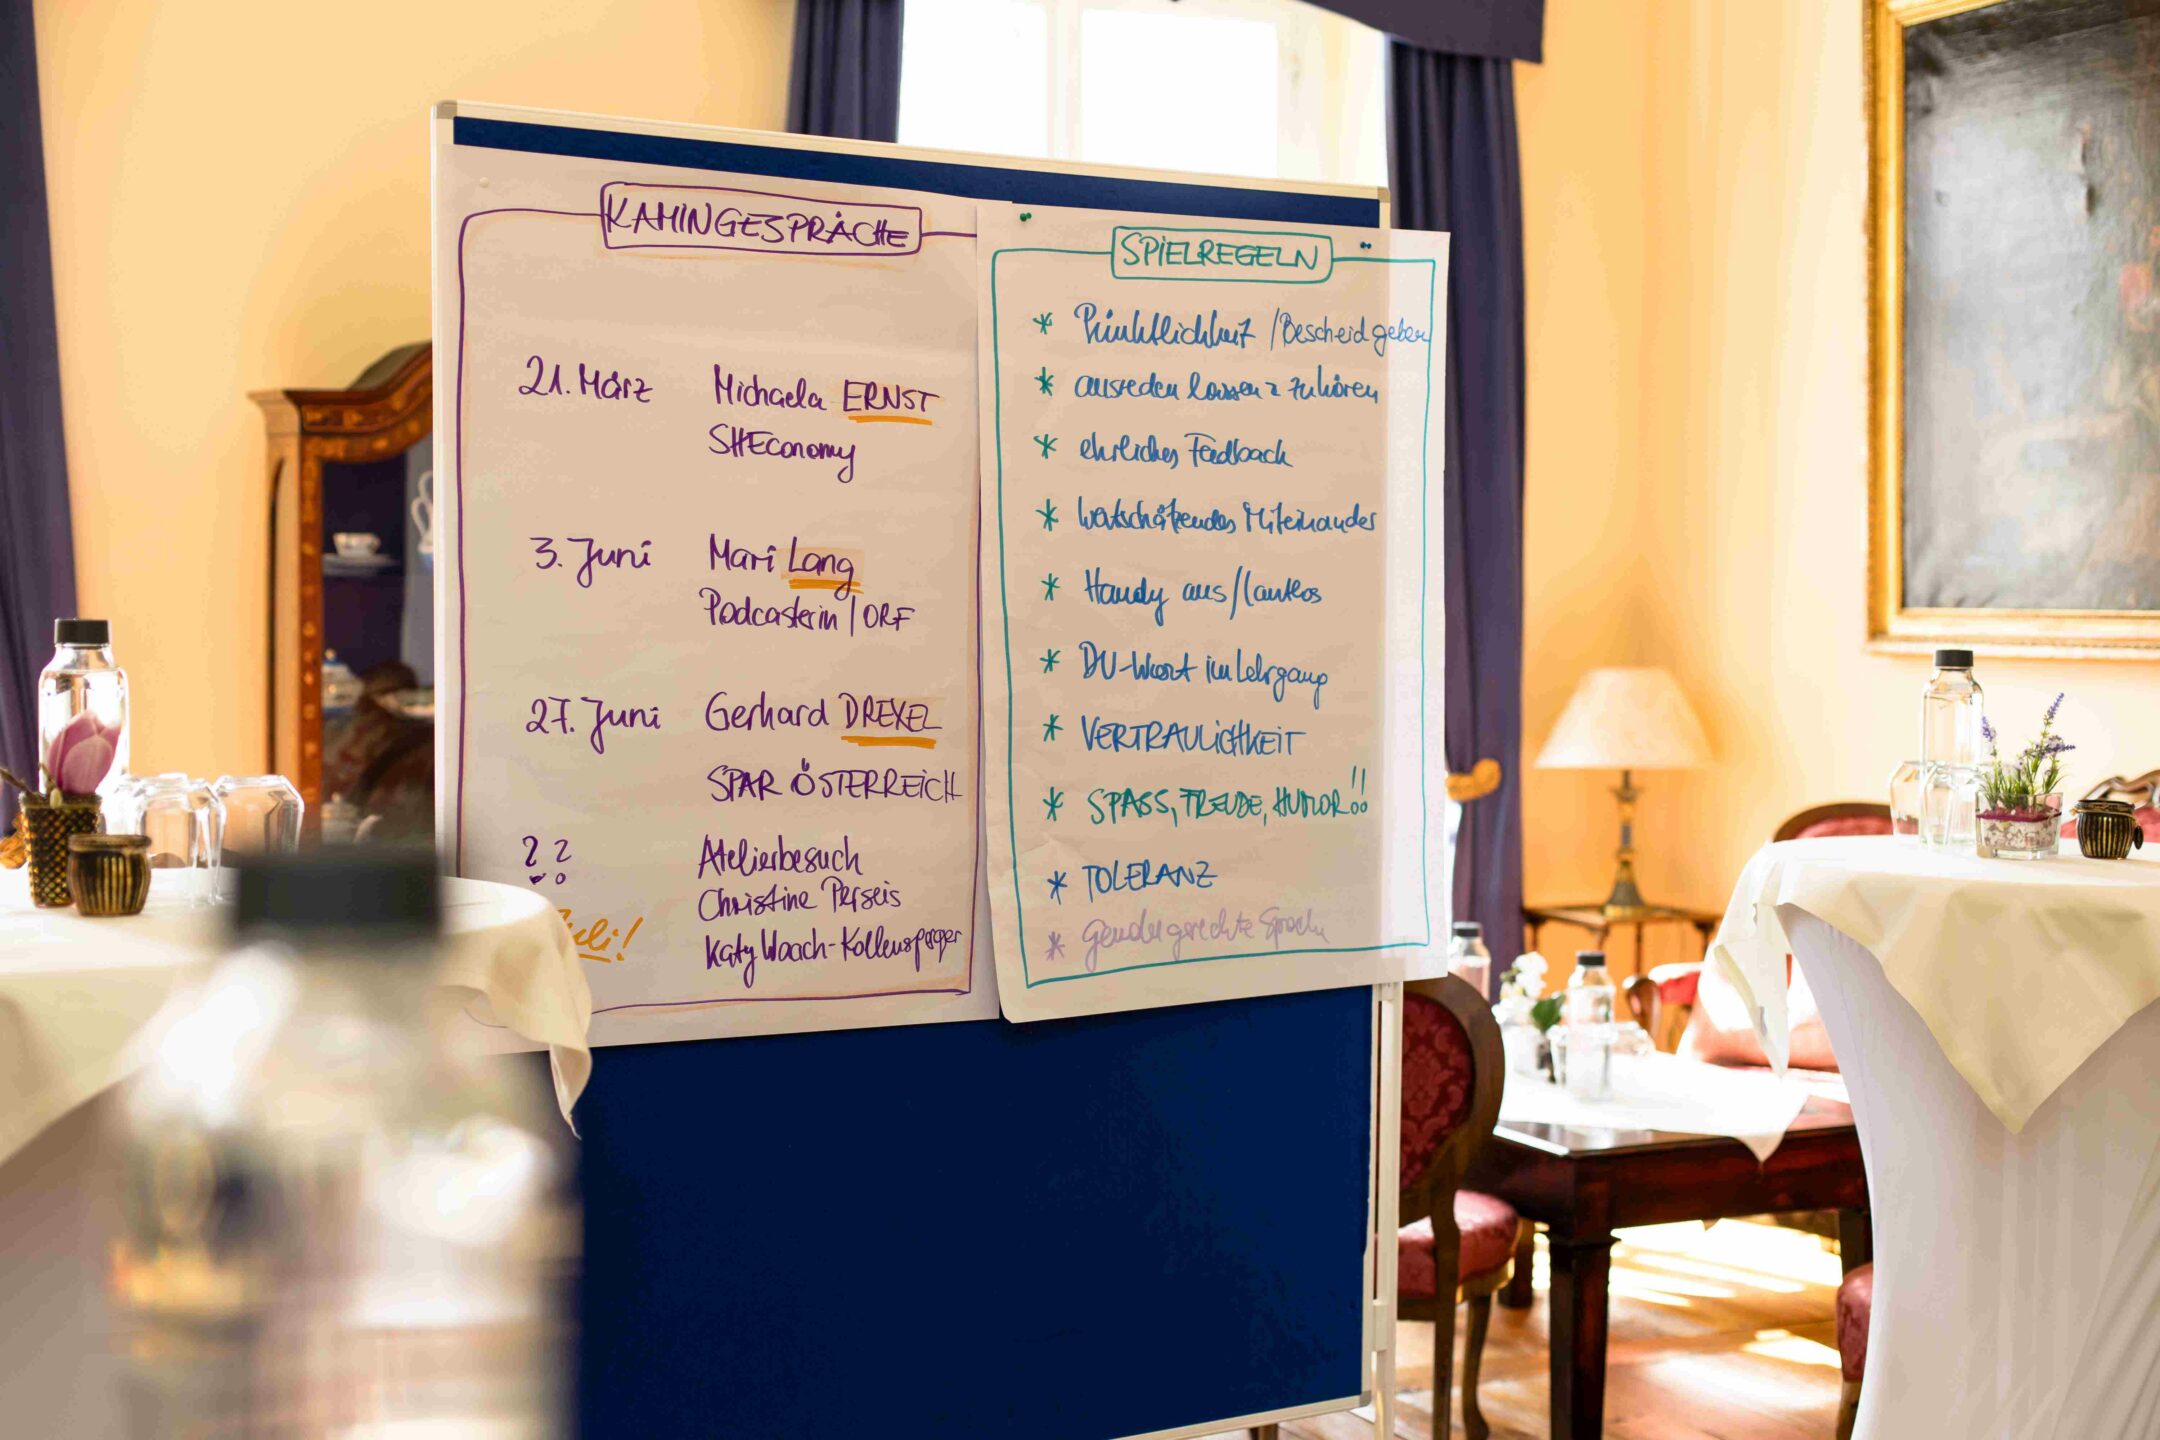 KAMINGESPRÄCHE
21. März Michaela ERNST
SHEconomy
3. Juni Mari Lang
Podcasterin / ORF
27. Juni Gerhard DREXEL
SPAR ÖSTERREICH
?? Atelierbesuch
Christine Perseis
Juli! Katy Waach-
SPIELREGELN
* Pünktlichkeit / Bescheid geben
* ausreden lassen & zuhören
* ehrliches Feedback
* wertschätzendes Miteinander
* Handy aus / lautlos
* DU-Wort im Lehrgang
* VERTRAULICHKEIT
* SPASS, FREUDE, HUMOR!!
* TOLERANZ
* gendergerechte Sprache